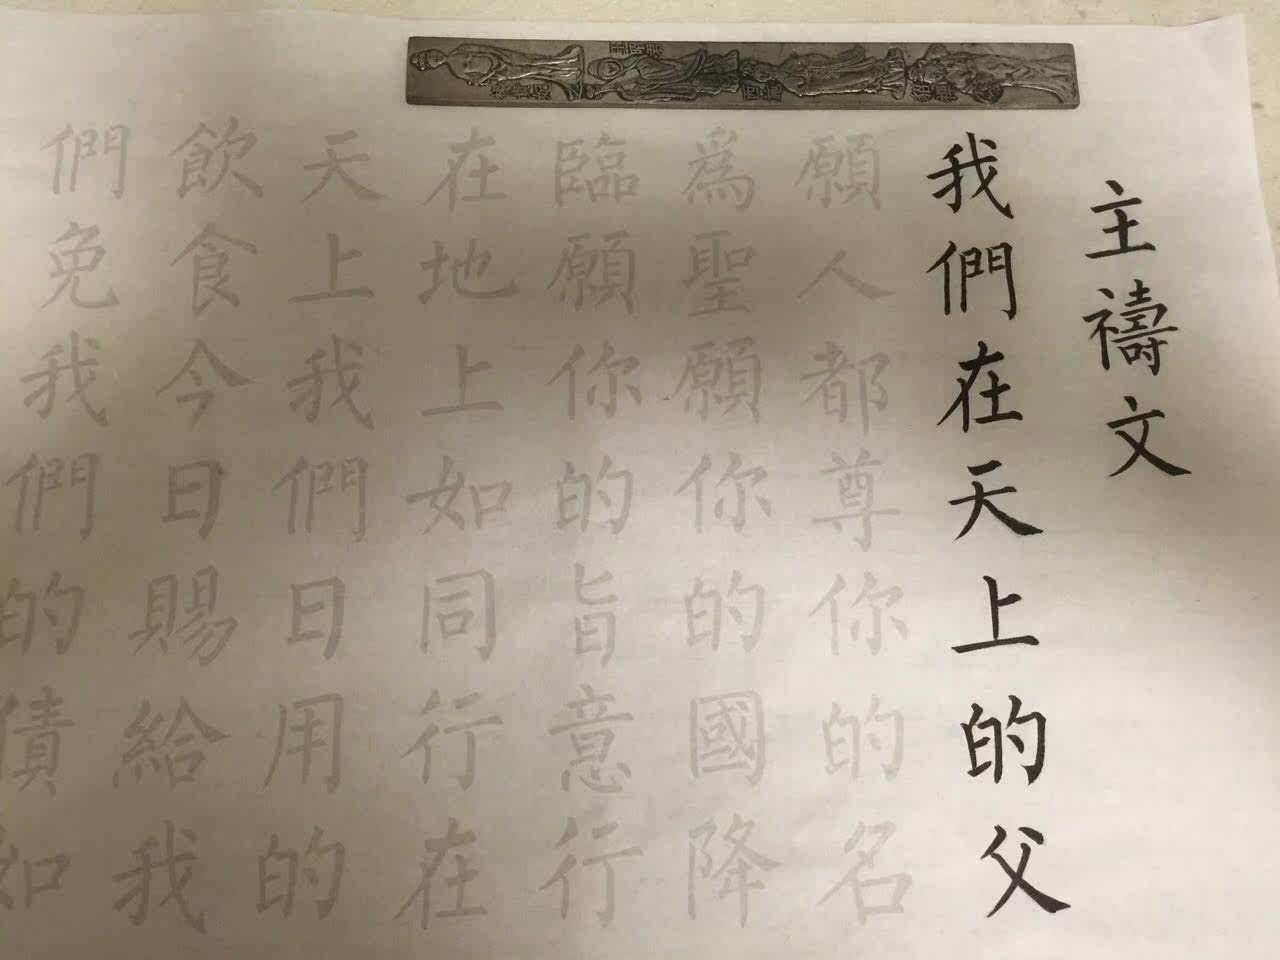 主禱文
我們在天上的父
願人都尊你的名
為聖願你的國降
臨願你的旨意行
在地上如同行在
天上我們日用的
飲食今日賜給我
們免我們的債如